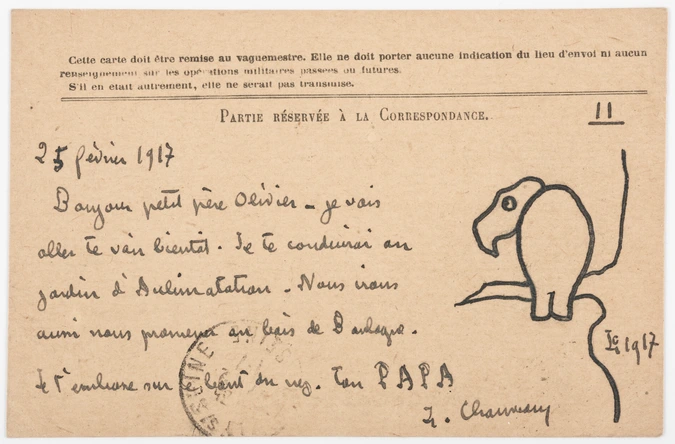 Cette carte doit être remise au vaguemestre. Elle ne doit porter aucune indication du lieu d'envoi ni aucun
renseignement sur les opérations militaires passées ou futures.
S'il en était autrement, elle ne serait pas transmise.
PARTIE RÉSERVÉE À LA CORRESPONDANCE.
II
25 février 1917
Bonjour petit père Olivier – je vais
aller te voir bientôt. Je te conduirai au
jardin d'Aclimatation. Nous irons
aussi nous promener au bois de Boulogne.
Je t'embrasse sur le bout du nez. Ton PAPA
1917